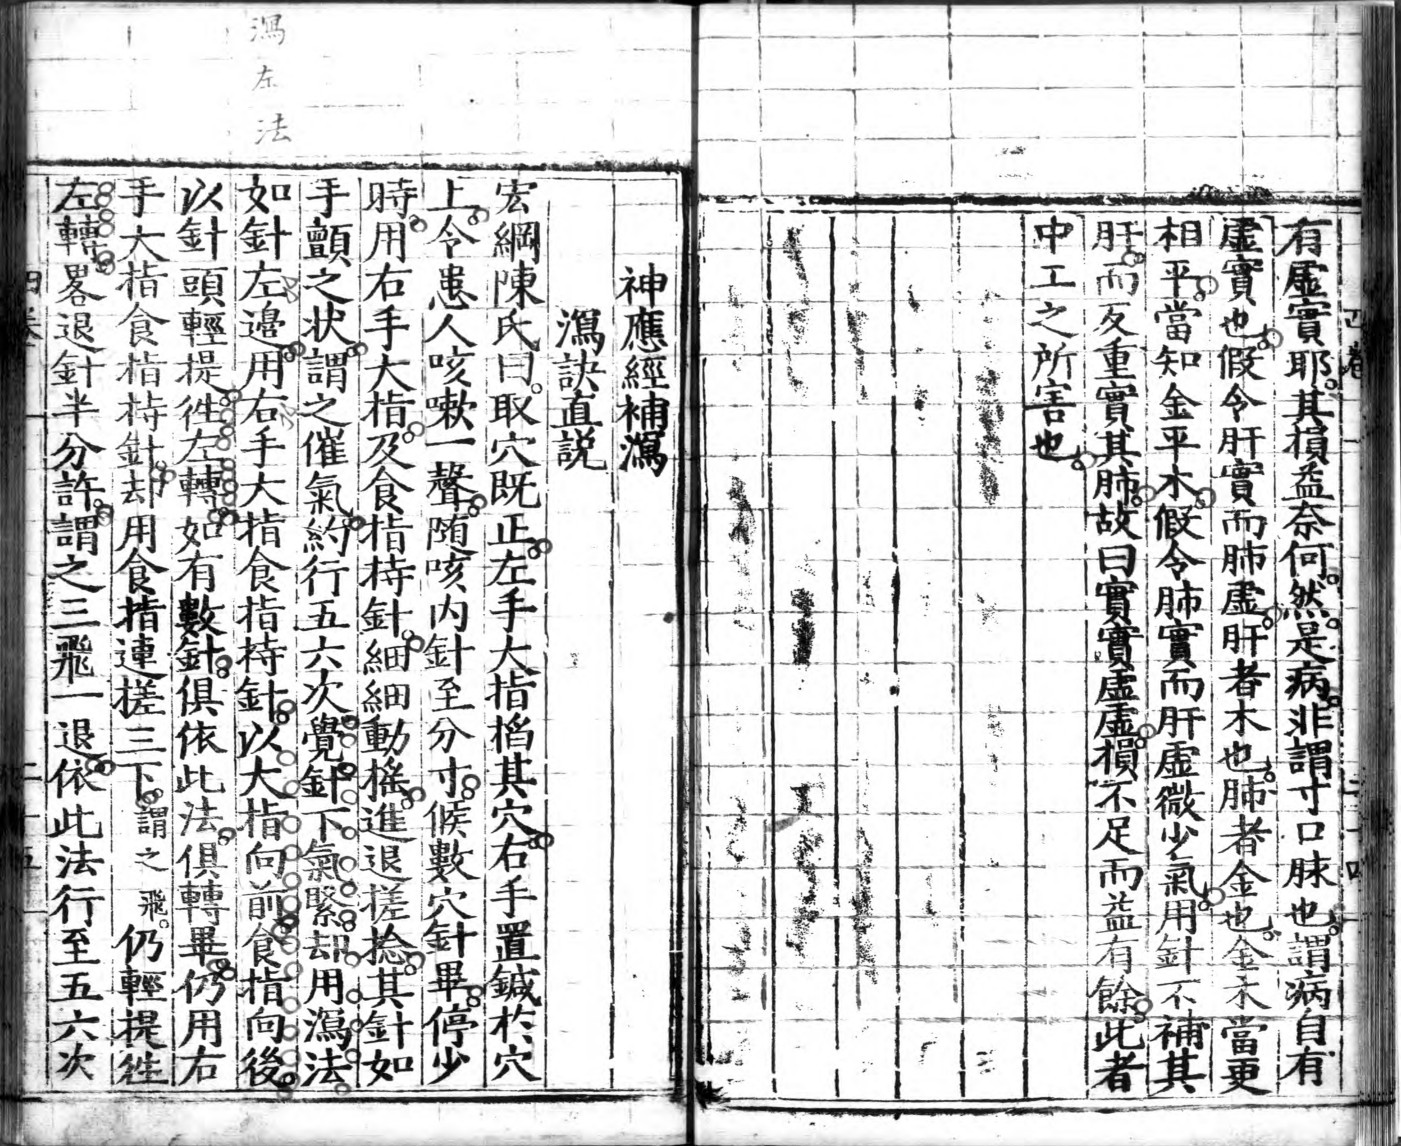 有虛實耶其損益奈何然是病非謂寸口脉也謂病自有
虛實也假令肝實而肺虛肝者木也肺者金也金木當更
相平當知金平木假令肺實而肝虛微少氣用針不補其
肝而反重實其肺故曰實實虛虛損不足而益有餘此者
中工之所害也
神應經補瀉
瀉訣直説
宏綱陳氏曰取穴既正左手大指掐其穴右手置鍼於穴
上令患人咳嗽一聲隨咳内針至分寸候數穴針畢停少
時用右手大指及食指持針細細動搖進退搓捻其針如
手顫之状謂之催氣約行五六次覺針下氣緊却用瀉法
如針左邊用右手大指食指持針以大指向前食指向後
以針頭輕提徃左轉如有數針俱依此法俱轉畢仍用右
手大指食指持針却用食指連搓三下謂之飛仍輕提徃
左轉畧退針半分許謂之三飛一退依此法行至五六次
瀉左法
四卷
二十五
四卷
二十四